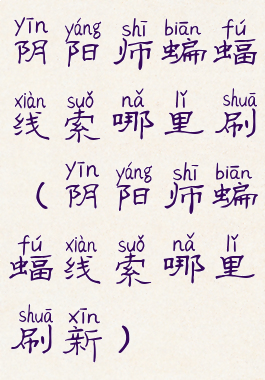 yīn yáng shī biān fú
阴 阳 师 蝙 蝠
xiàn suǒ nǎ lǐ shuā
线 索 哪 里 刷
yīn yáng shī biān
( 阴 阳 师 蝙
fú xiàn suǒ nǎ lǐ
蝠 线 索 哪 里
shuā xīn
刷 新 )